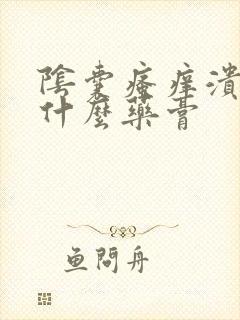 陰囊瘙痒潰
什麼藥膏
魚問舟